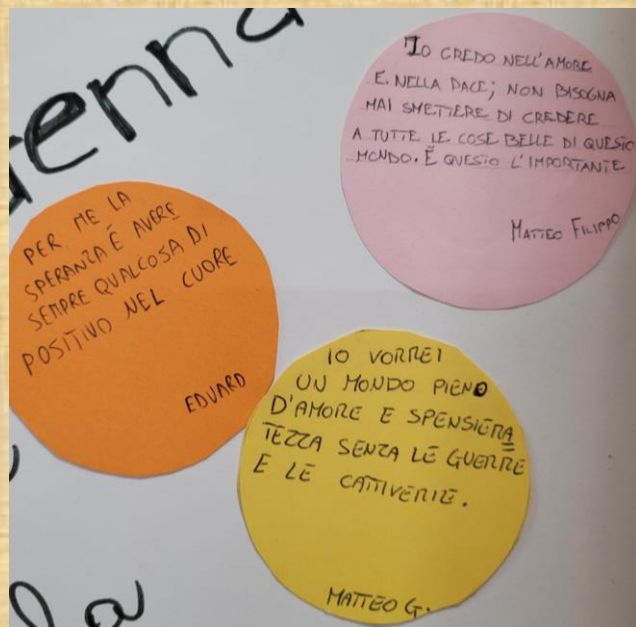 enna
IO CREDO NELL'AMORE
E NELLA PACE; NON BISOGNA
MAI SMETTERE DI CREDERE
A TUTTE LE COSE BELLE DI QUESTO
MONDO. È QUESTO L'IMPORTANTE
MATTEO FILIPPO
PER ME LA
SPERANZA É AVERE
SEMPRE QUALCOSA DI
POSITIVO NEL CUORE
EDUARD
IO VORREI
UN MONDO PIENO
D'AMORE E SPENSIERA
TEZZA SENZA LE GUERRE
E LE CATTIVERIE.
MATTEO G.
la